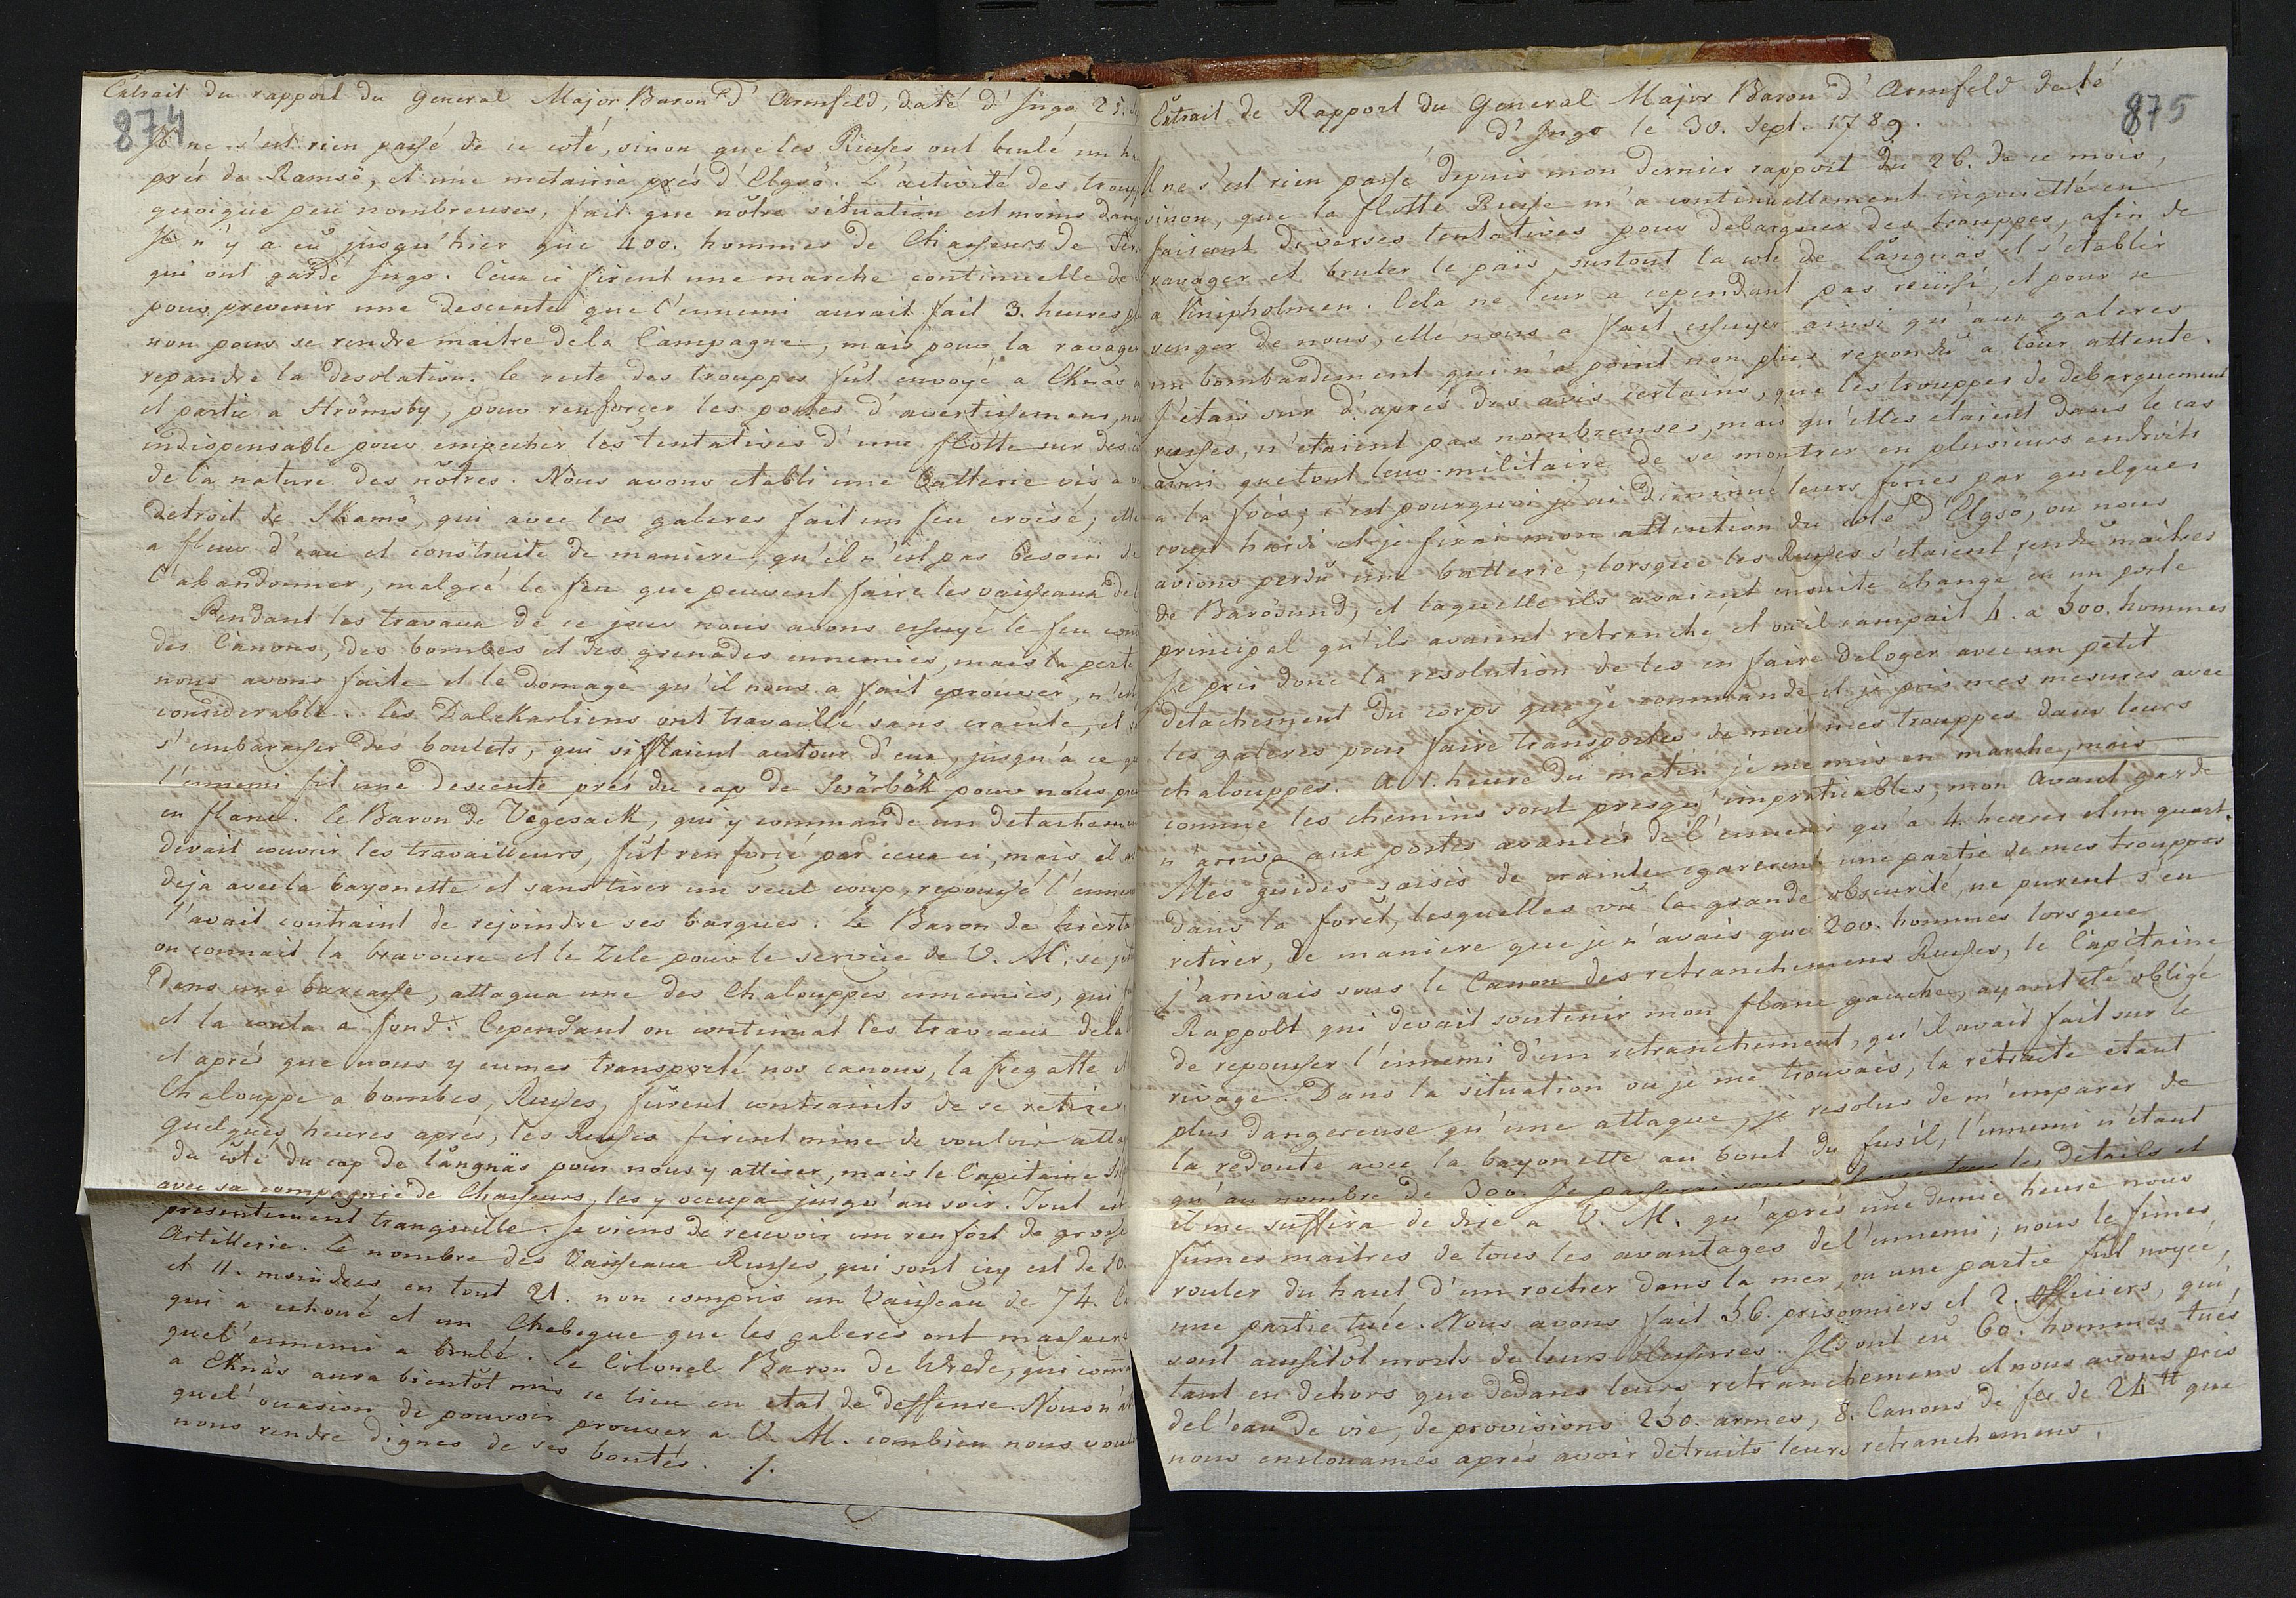 Extrait du rapport du General Major Baron d'Armfeld, daté d'Ingo 25.
874
Il ne s'est rien passé de ce coté, sinon que les Russes ont brulé un
prés de Ramsö, et une metairie prés d'Elgsö. L'activité des
quoique peu nombreuses, fait que nôtre situation est moins
Il n'y a eu jusqu'hier que 400. hommes de Chasseurs de
qui ont gardé Ingo. Ceux ci firent une marche continuelle de
pour prevenir une descente que l'ennemi aurait fait 3. heures
non pour se rendre maitre de la Campagne, mais pour la ravager
repandre la desolation. Le reste des trouppes fût envoyé a Eknäs
et partie a Strömsby, pour renforçer les postes d'avertissemens,
indispensable pour empecher les tentatives d'une flotte sur des
de la nature des nôtres. Nous avons etabli une Batterie vis a
detroit de Skamö, qui avec les galeres fait un feu croisé;
a fleur d'eau et construite de maniere, qu'il n'est pas besoin de
l'abandonner, malgré le feu que peuvent faire les vaisseaux
Pendant les travaux de ce jour nous avons essuyé le feu
des Canons, des bombes et des grenades ennemies, mais la perte
nous avons faite et le domage qu'il nous a fait eprouver, n'est
considerable. Les Dalekarliens ont travaillé sans crainte, et
s'embarasser des boulets, qui sifflaient autour d'eux, jusqu'á ce
l'ennemi fit une descente prés du cap de Swärbäk pour nous
en flanc. Le Baron de Vegesack, qui y commande un
devait couvrir les travailleurs, fût renforcé par ceux ci, mais il
deja avec la bayonette et sans tirer un seul coup, repoussé
l'avait contraint de rejoindre ses barques. Le Baron de
on connait la bravoure et le Zele pour le service de V. M. se
dans une barcasse, attaqua une des Chalouppes ennemies, qui
et la coula a fond. Cependant on continuat les traveaux
et aprés que nous y eumes transporté nos canons, la fregatte
Chalouppe a bombes, Russes, fûrent contraints de se retirer
Quelques heures aprés, les Russes firent mine de vouloir
du côté du cap de Långnäs pour nous y attirer, mais le Capitaine
avec sa compagnie de Chasseurs, les y occupa jusqu'au soir. Tout
presentement tranquille. Je viens de recevoir un renfort de grosse
Artillerie. Le nombre des Vaisseaux Russes, qui sont icy est de 10.
et 11. moindres, en tout 21. non compris un Vaisseau de 74.
qui a echoué et un Chebeque que les galeres ont
que l'ennemi a brulé. Le Colonel Baron de Wrede, qui
a Eknäs aura bientôt mis ce lieu en etat de deffense. Nous
que l'occasion de pouvoir prouver a V. M. combien nous
nous rendre dignes de ses bontés. ./.
Extrait de Rapport du General Major Baron d'Armfeld daté
d'Ingo le 30. Sept. 1789.
875
Il ne s'est rien passé depuis mon dernier rapport du 26. de ce mois,
sinon, que la flotte Russe m'a continuellement inquietté en
faisant diverses tentatives pour debarquer des trouppes, afin de
ravager et bruler le païs, surtout la cote de Långnäs et s'etablir
a Knipholmen. Cela ne leur a cependant pas reüssi, et pour se
venger de nous, elle nous a fait essuyer ainsi qu'aux galeres
un bombardement qui n'a point non plus repondu a leur attente.
J'etais sur d'aprés des avis certains, que les trouppes de debarquement
russes, n'etaient pas nombreuses, mais qu'elles etaient dans le cas
ainsi que tout leur militaire de se montrer en plusieurs endroits
a la fois; c'est pourquoi j'ai diminué leurs forces par quelques
coups hardi et je fixai mon attention du coté d'Elgsö, ou nous
avions perdû une batterie, lorsque les Russes s'etaient rendû maitres
de Barösund, et laquelle ils avaient ensuite changé en un poste
principal qu'ils avaient retranché et ou il campait 4. a 500. hommes
Je pris donc la resolution de les en faire deloger avec un petit
detachement du corps que je commande et je pris mes mesures avec
les galeres pour faire transporter de nuit mes trouppes dans leurs
chalouppes. A 1. heure du matin je me mis en marche, mais
comme les chemins sont presqu'impraticables, mon Avant garde
n'arriva aux postes avancés de l'ennemi qu'a 4. heures et un quart.
Mes guides saisis de crainte egarerent une partie de mes trouppes
dans la forêt, lesquelles vû la grande obscurité, ne purent s'en
retirer, de maniere que je n'avais que 200. hommes lorsque
j'arrivais sous le Canon des retranchemens Russes, le Capitaine
Rappolt qui devait soutenir mon flanc gauche, ayant eté obligé
de repousser l'ennemi d'un retranchement, qu'il avait fait sur le
rivage. Dans la situation ou je me trouvais, la retraite etant
plus dangereuse qu'une attaque, je resolus de m'emparer de
la redoute avec la bayonette au bout du fusil, l'ennemi n'étant
qu'au nombre de 300. Je passerai sous silence tous les details et
il me suffira de dire a V. M. qu'aprés une demie heure nous
fûmes maitres de tous les avantages de l'ennemi; nous le fimes
rouler du haut d'un rocher dans la mer, ou une partie fut noyée,
une partie tuée. Nous avons fait 36. prisonniers et 2. officiers, qui
sont aussitot morts de leurs blessures. Ils ont eû 60. hommes tués
tant en dehors que dedans leurs retranchemens et nous avons pris
de l'eau de vie, de provisions 250. armes, 8. Canons de fer de 24 tt que
nous enclouames aprés avoir detruits leurs retranchemens.